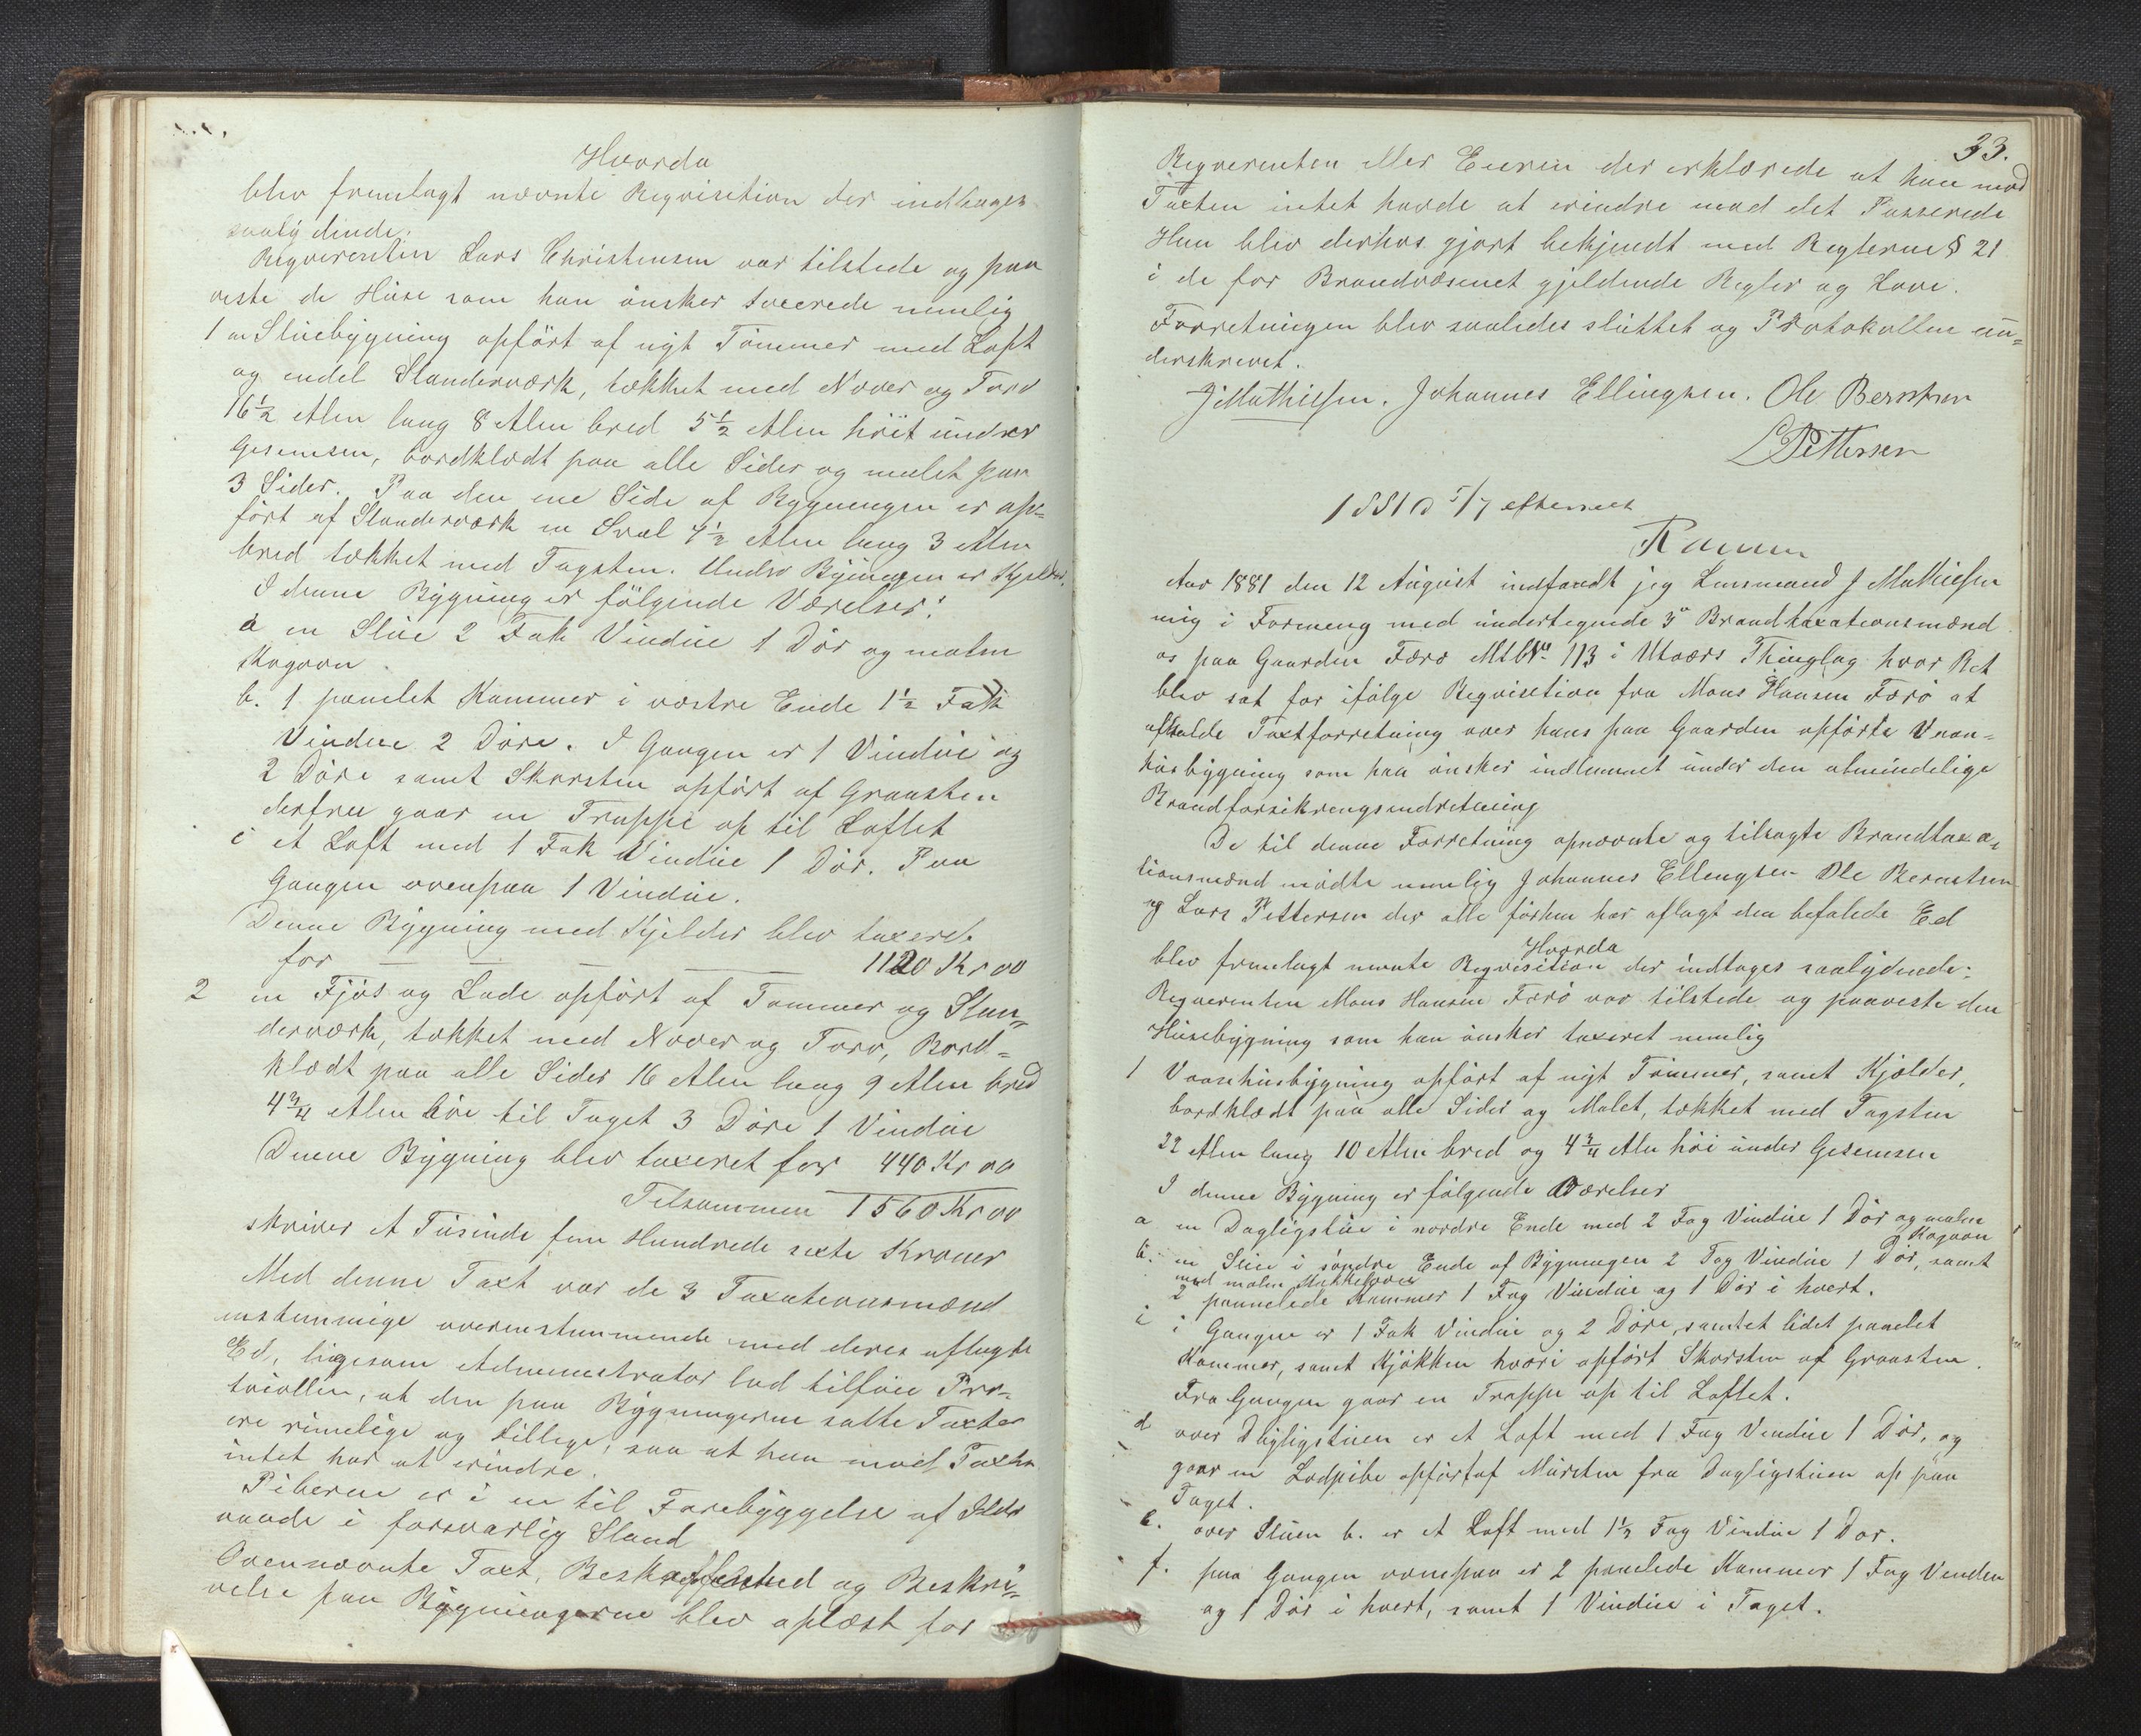 Hvorda
blev fremlagt nævnte Reqvisition der indtages
saalydende:
Reqverenten Lars Christensen var tilstede og paa
viste de Huse som han ønsker taxerede nemlig
1 en Stuebygning opført af nyt Tømmer med Loft
og endel Stenderværk, tækket med Never og Torv
16½ Alen lang 8 Alen bred 5½ Alen höit under
Gesemsen, bordklædt paa alle Sider og malet paa
3 Sider. Paa den ene Side af Bygningen er op=
ført af Standerværk en Sval 7½ Alen lang 3 Alen
bred tækket med Tagsten. Under Bygningen er Kjelder.
I denne Bygning er følgende Værelser:
a en Stue 2 Fak Vindue 1 Dør og malm
Kogovn
b. 1 panelet Kammer i vestre Ende 1½ Fak
Vindue 2 Døre. I Gangen er 1 Vindue og
2 Døre samt Skorsten opført af Graasten
derfra gaar en Trappe op til Loftet
c et Loft med 1 Fak Vindue 1 Dør. Paa
Gangen ovenpaa 1 Vindue.
Denne Bygning med Kjelder blev taxeret
for — — — — 1120 Kr 00
2 en Fjøs og Lade opført af Tømmer og Stan=
derværk, tækket med Never og Torv, Bord=
klædt paa alle Sider 16 Alen lang 9 Alen bred
4¾ Alen høi til Taget 3 Døre 1 Vindue
Denne Bygning blev taxeret for 440 Kr 00
Tilsammen 1560 Kr 00
skriver et Tusinde fem Hundrede sexti Kroner
Med denne Taxt var de 3 Taxationsmænd
enstemmige overenstemmende med deres aflagte
Ed, ligesom Administrator lod tilføie Pro=
tocollen, at den paa Bygningerne satte Taxter
ere rimelige og billige, saa at han mod Taxten
intet har at erindre.
Piberne er i en til Forebyggelse af Ilds
vaade i forsvarlig Stand
Ovennævnte Taxt, Beskaffenhed og Beskri=
velse paa Bygningerne blev oplæst for
33.
Reqverenten eller Eieren der erklærede at han mod
Taxten intet havde at erindre mod det Passerede
Han blev derhos gjort bekjendt med Reglerne § 21
i de for Brandvæsenet gjeldende Regler og Love.
Forretningen blev saaledes sluttet og Protokollen un=
derskrevet.
J Mathiesen. Johannes Ellingsen. Ole Berntsen
L Pettersen
1881 5/7 efterseet
Aar 1881 den 12 August indfandt jeg Lensmand J Mathiesen
mig i Forening med undertegnede 3de Brandtaxationsmænd
os paa Gaarden Færø Mt No 113 i Utvær Thinglag hvor Ret
blev sat for ifølge Reqvisition fra Mons Hansen Færö at
afholde Taxtforretning over hans paa Gaarden opførte Vaan=
husbygning som han ønsker indlemmet under den almindelige
Brandforsikringsindretning
De til denne Forretning opnævnte og tilsagte Brandtaxa=
tionsmænd mødte nemlig Johannes Ellingsen Ole Berentsen
og Lars Pettersen der alle förhen har aflagt den befalede Ed
Hvorda
blev fremlagt nævnte Reqvisition der indtages saalydende:
Reqverenten Mons Hansen Færö var tilstede og paaviste den
Husebygning som han ønsker taxeret nemlig
1 Vaanehusbygning opført af nyt Tømmer, samt Kjælder,
bordklædt paa alle Sider og Malet, tækket med Tagsten
22 Alen lang 10 Alen bred og 4¾ Alen høi under Gesemsen
I denne Bygning er følgende Værelser
a en Dagligstue i nordre Ende med 2 Fag Vindue 1 Dör og malm
Kogovn
b. en Stue i søndre Ende af Bygningen 2 Fag Vindue 1 Dør, samt
med malm Kakkelovn
2 pannelede Kammer 1 Fag Vindue og 1 Dør i hvert.
c i Gangen er 1 Fak Vindue og 2 Døre, samt et lidet panelet
Kammer, samt Kjøkken hvori opført Skorsten af Graasten.
Fra Gangen gaar en Trappe op til Loftet.
d over Dagligstuen er et Loft med 1 Fag Vindue 1 Dør, og
gaar en Lodpibe opført af Mursten fra Dagligstuen op paa
Taget.
e. over Stuen b. er et Loft med 1½ Fag Vindue 1 Dør.
f. paa Gangen ovenpaa er 2 panelede Kammer 1 Fag Vindue
og 1 Dør i hvert, samt 1 Vindue i Taget.